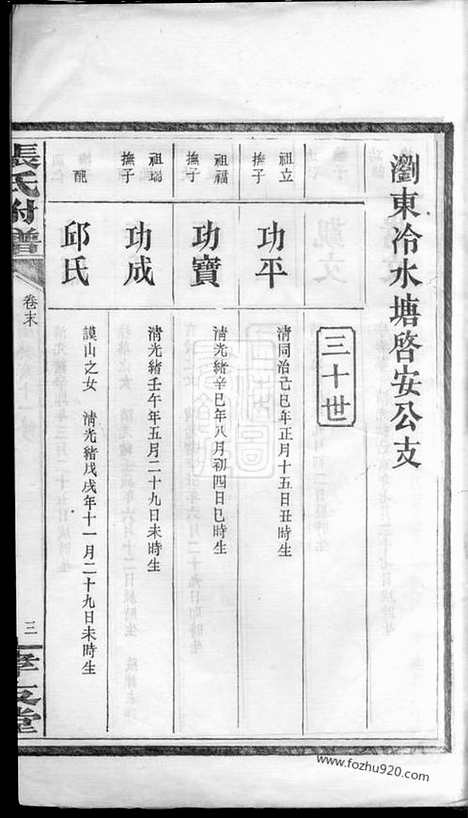 瀏東冷水塘啓安公支
三十世
祖立
撫子
功平
清同治己巳年正月十五日丑時生
祖福
撫子
功寶
清光緒辛巳年八月初四日巳時生
祖瑞
撫子
功成
清光緒壬午年五月二十九日未時生
配
邱氏
謨山之女 清光緒戊戌年十一月二十九日未時生
張氏附譜
卷末
三
孝友堂
www.fozhu920.com